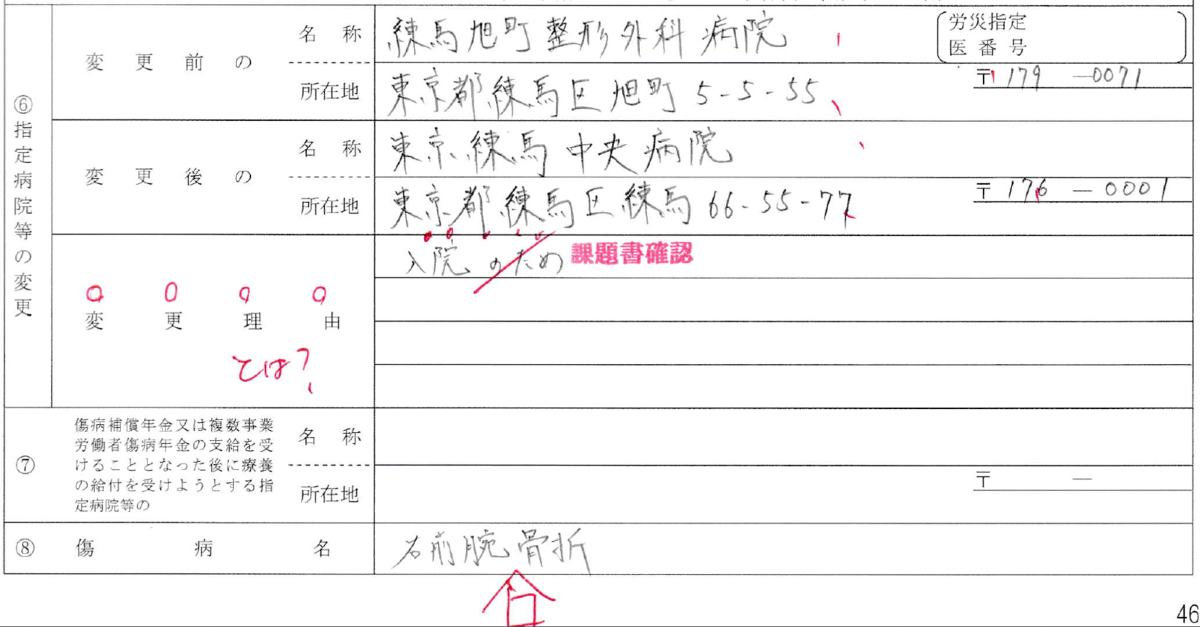 ⑥指定病院等の変更
変更前の
名称 練馬旭町整形外科病院
労災指定
医番号
所在地 東京都練馬区旭町5-5-55
〒179-0071
変更後の
名称 東京練馬中央病院
所在地 東京都練馬区練馬66-55-77
〒176-0001
変更理由
入院のため 課題書確認
とは?
⑦
傷病補償年金又は複数事業
労働者傷病年金の支給を受
けることとなった後に療養
の給付を受けようとする指
定病院等の
名称
所在地
〒 -
⑧ 傷病名 右前腕骨折
46